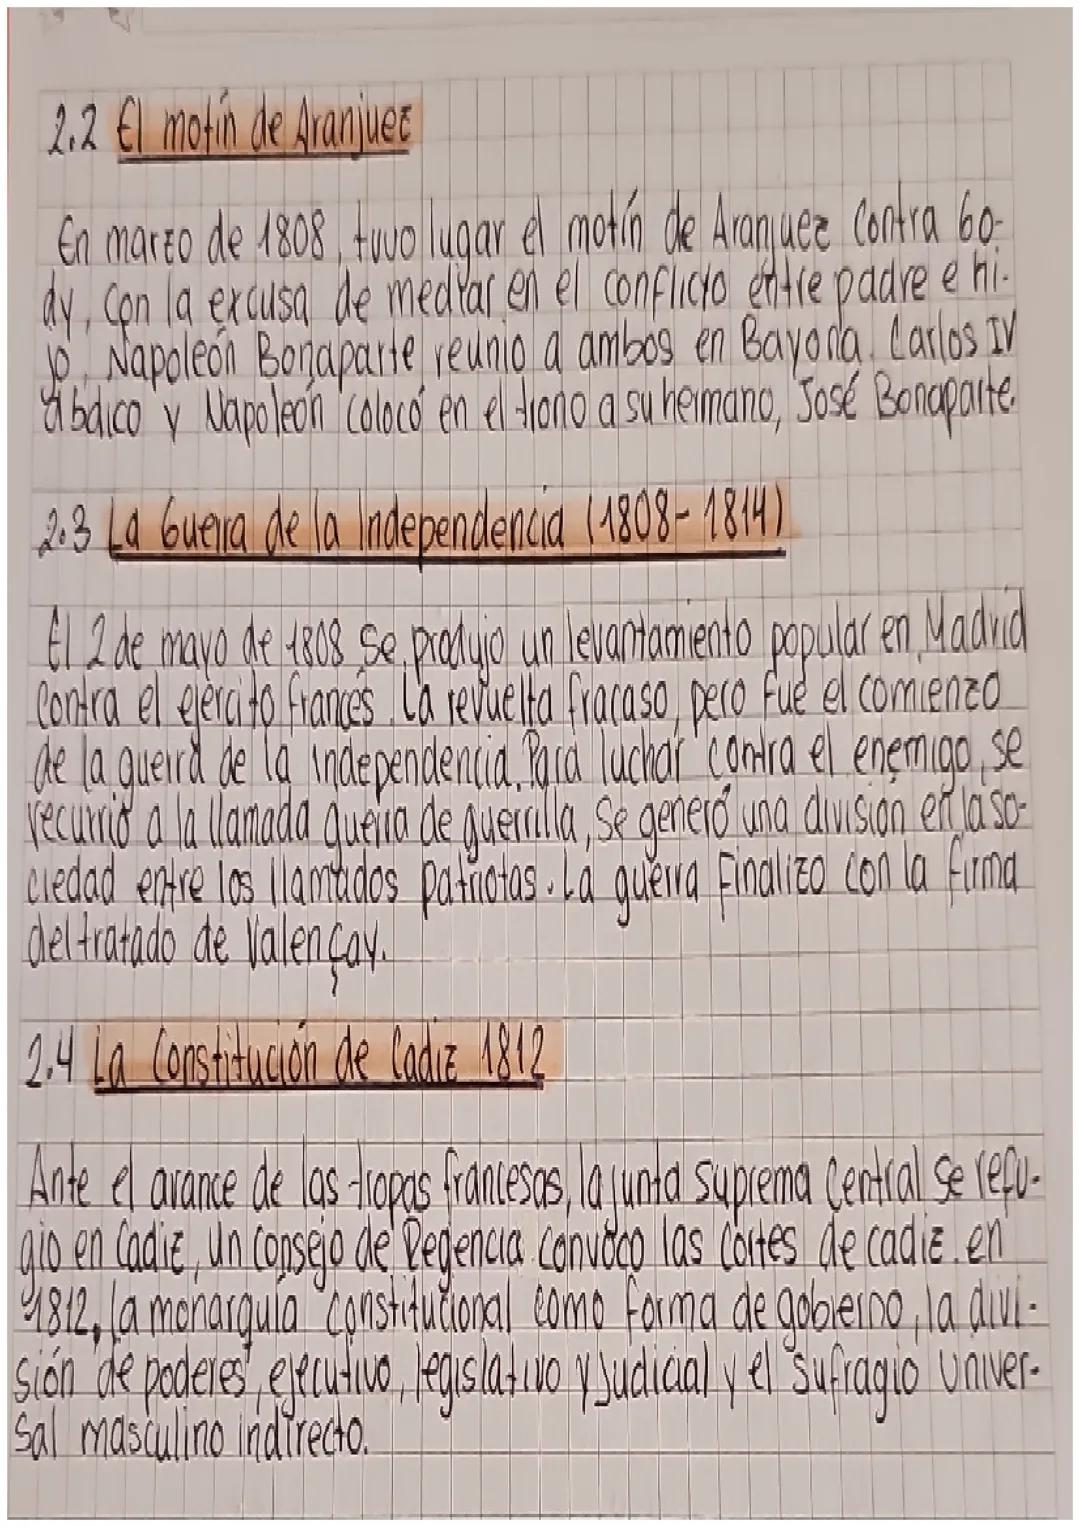 2.2 El motín de Aranjuez
En marzo de 1808, tuvo lugar el motín de Aranjuez contra Go-
dy, con la excusa de mediar en el conflicto entre padre e hi-
jo, Napoleón Bonaparte reunio a ambos en Bayona. Carlos IV
abdico y Napoleón coloco en el trono a su hermano, José Bonaparte.
2.3 La Guerra de la Independencia (1808-1814)
El 2 de mayo de 1808 se produjo un levantamiento popular en Madrid
contra el ejército francés. La revuelta fracaso, pero fue el comienzo
de la guerra de la independencia. Para luchar contra el enemigo, se
recurrió a la llamada guerra de guerrilla, Se generó una división en la so-
ciedad entre los llamados patriotas. La guerra Finalizo con la firma
del tratado de Valençay.
2.4 La Constitución de Cadiz 1812
Ante el avance de las tropas francesas, la junta suprema Central se refu-
gio en Cadiz, un consejo de Regencia convoco las cortes de cadiz. en
1812, la monarquía constitucional como forma de gobierno, la divi-
sión de poderes, ejecutivo, legislativo y Judicial y el sufragio univer-
sal masculino indirecto.